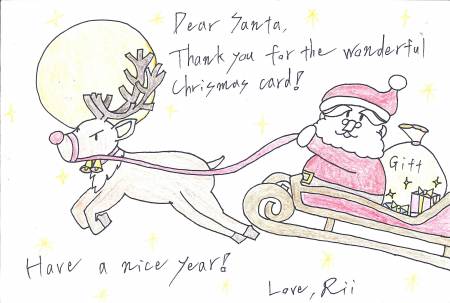 Dear Santa,
Thank you for the wonderful
Chrismas card!
Gift
Have a nice year!
Love, Rii